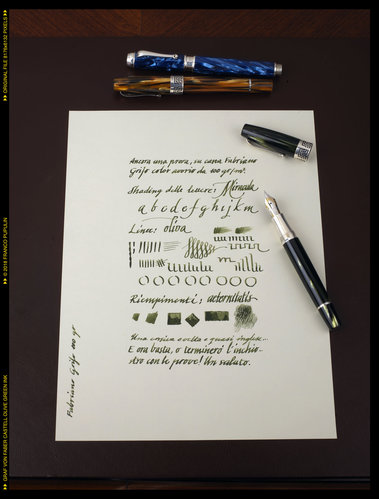 Ancora una prova, su carta Fabriano
Grifo color avorio da 100 gr/m².
Shading delle lettere: Mirinda
a b c d e f g h i j k m
Linee: oliva
m
Riempimenti: aeternitatis
Una corsiva svelta e quasi inglese...
E ora basta, o terminerò l'inchio-
stro con le prove! Un saluto.
Fabriano Grifo 100 gr
GRAF VON FABER CASTELL OLIVE GREEN INK
© 2018 FRANCO PUPULIN
ORIGINAL FILE 8176x6132 PIXELS